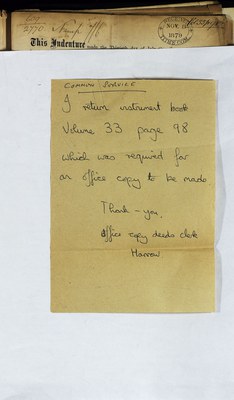 This Indenture
1879
COMMON SERVICE
I return instrument book
Volume 33 page 98
which was required for
an office copy to be made
Thank-you,
office copy deeds clerk
Harrow